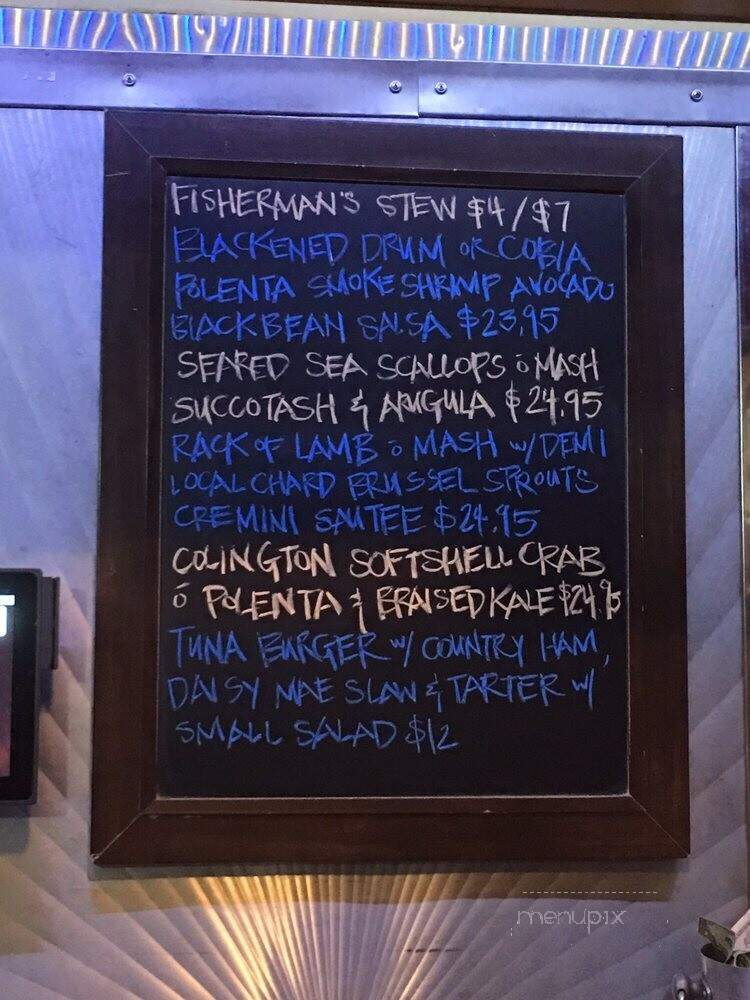 FISHERMAN'S STEW $4/$7
BLACKENED DRUM OR COBIA
POLENTA SMOKE SHRIMP AVOCADO
BLACKBEAN SALSA $23.95
SEARED SEA SCALLOPS ō MASH
SUCCOTASH & ARUGULA $24.95
RACK OF LAMB ō MASH w/ DEMI
LOCAL CHARD BRUSSEL SPROUTS
CREMINI SAUTEE $24.95
COLINGTON SOFTSHELL CRAB
ō POLENTA & BRAISED KALE $24.95
TUNA BURGER w/ COUNTRY HAM,
DAISY MAE SLAW & TARTER w/
SMALL SALAD $12
menupix